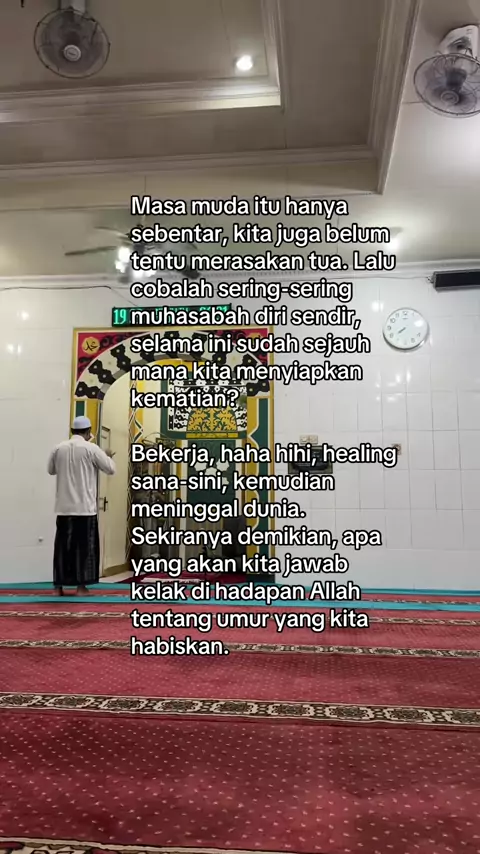 Masa muda itu hanya
sebentar, kita juga belum
tentu merasakan tua. Lalu
cobalah sering-sering
muhasabah diri sendir,
selama ini sudah sejauh
mana kita menyiapkan
kematian?
Bekerja, haha hihi, healing
sana-sini, kemudian
meninggal dunia.
Sekiranya demikian, apa
yang akan kita jawab
kelak di hadapan Allah
tentang umur yang kita
habiskan.
19
محمد